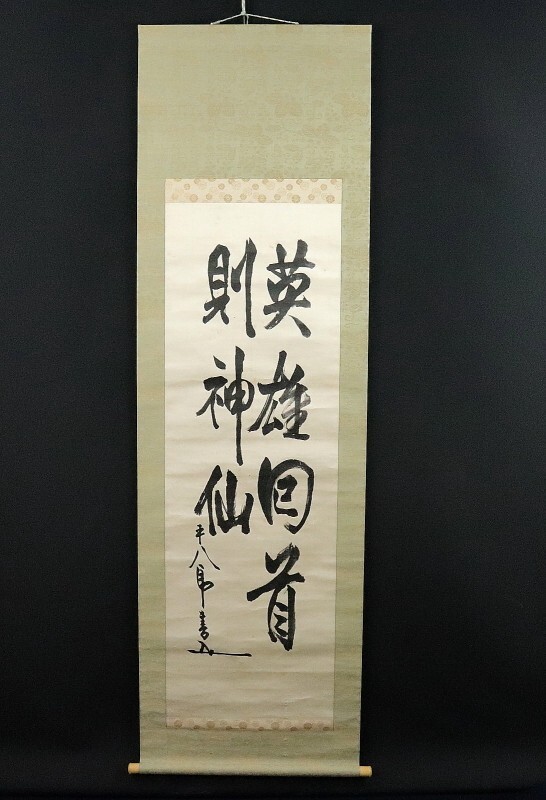 英雄回首
則神仙
平八郎書